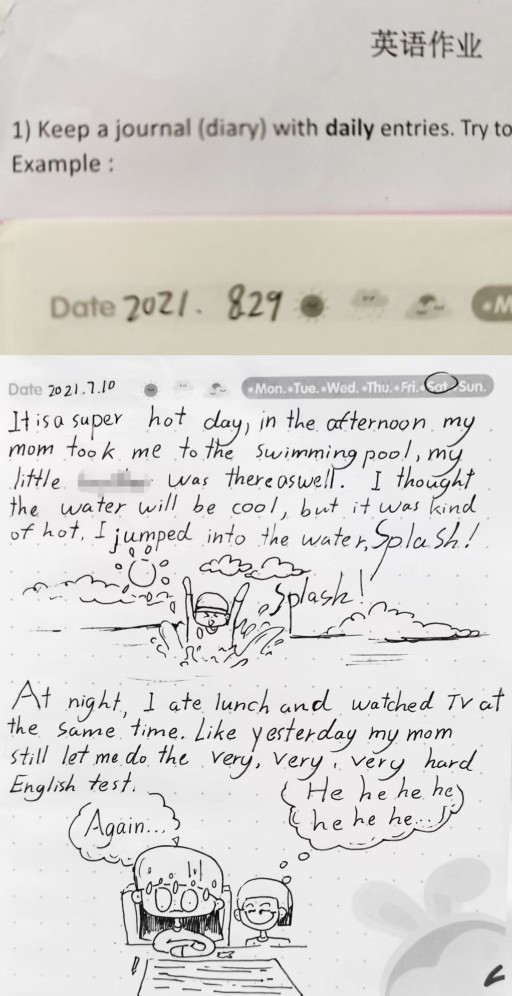 英语作业
1) Keep a journal (diary) with daily entries. Try to
Example :
Date 2021. 829
Date 2021.7.10 •Mon. •Tue. •Wed. •Thu. •Fri. •Sat. •Sun.
It is a super hot day, in the afternoon my
mom took me to the swimming pool, my
little was there aswell. I thought
the water will be cool, but it was kind
of hot. I jumped into the water, Splash!
Splash!
At night, I ate lunch and watched TV at
the same time. Like yesterday my mom
still let me do the very, very, very hard
English test.
Again...
He he he he
he he he...